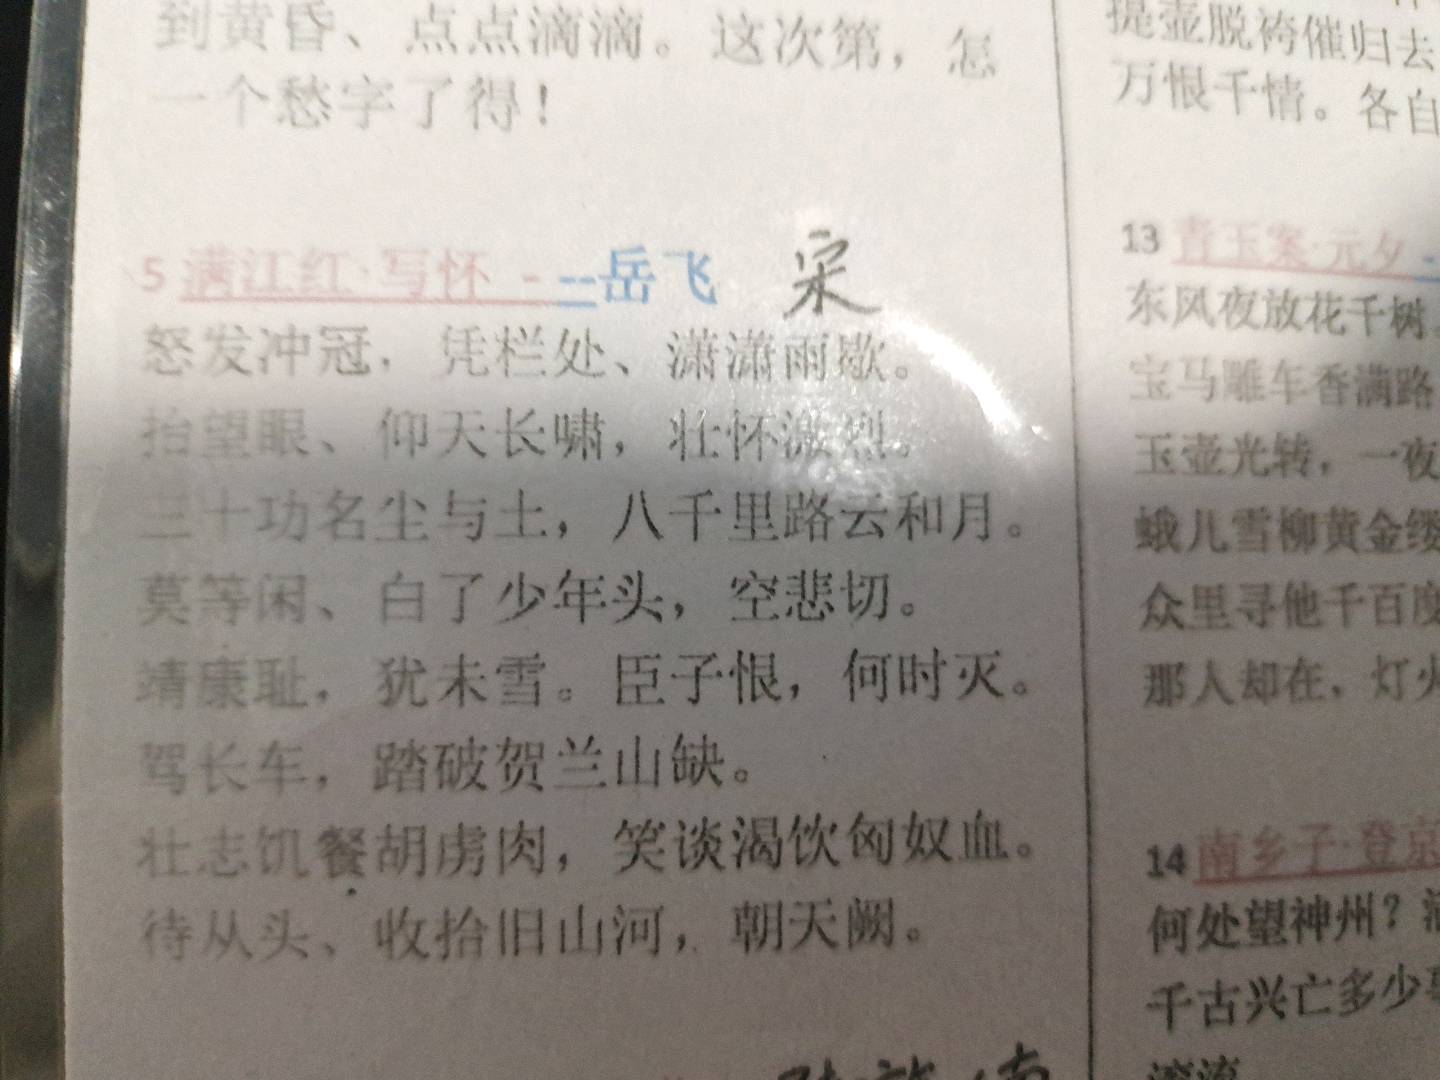 到黄昏、点点滴滴。这次第，怎
一个愁字了得！
5 满江红·写怀 - --岳飞 宋
怒发冲冠，凭栏处、潇潇雨歇。
抬望眼、仰天长啸，壮怀激烈。
三十功名尘与土，八千里路云和月。
莫等闲、白了少年头，空悲切。
靖康耻，犹未雪。臣子恨，何时灭。
驾长车，踏破贺兰山缺。
壮志饥餐胡虏肉，笑谈渴饮匈奴血。
待从头、收拾旧山河，朝天阙。
提壶脱袴催归去
万恨千情。各自
13 青玉案·元夕 -
东风夜放花千树。
宝马雕车香满路
玉壶光转，一夜
蛾儿雪柳黄金缕
众里寻他千百度
那人却在，灯火
14 南乡子·登京
何处望神州？满
千古兴亡多少事
滚流